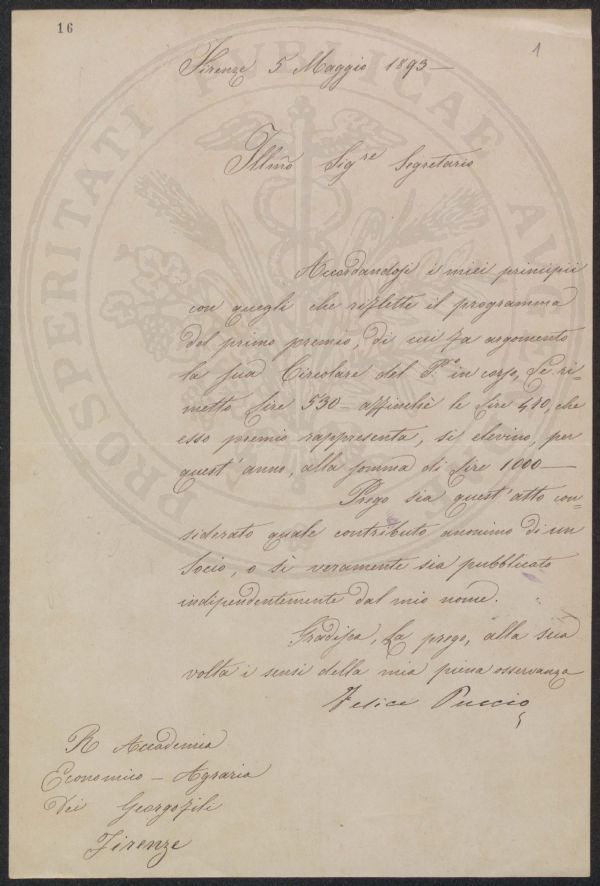 16
1
Firenze 5 Maggio 1893—
Illmo Sigre Segretario
Accordandosi i miei principii
con quegli che riflette il programma
del primo premio, di cui fa argomento
la sua Circolare del Pmo in corso, Le ri-
metto Lire 530— affinchè le Lire 470, che
esso premio rappresenta, si elevino, per
quest'anno, alla somma di Lire 1000—
Prego sia quest'atto con-
siderato quale contributo anonimo di un
Socio, o sì veramente sia pubblicato
indipendentemente dal mio nome.
Gradisca, La prego, alla sua
volta i sensi della mia piena osservanza
Felice Puccio
R Accademia
Economico - Agraria
Dei Georgofili
Firenze
PROSPERITATI PUBLICAE AUGENDAE